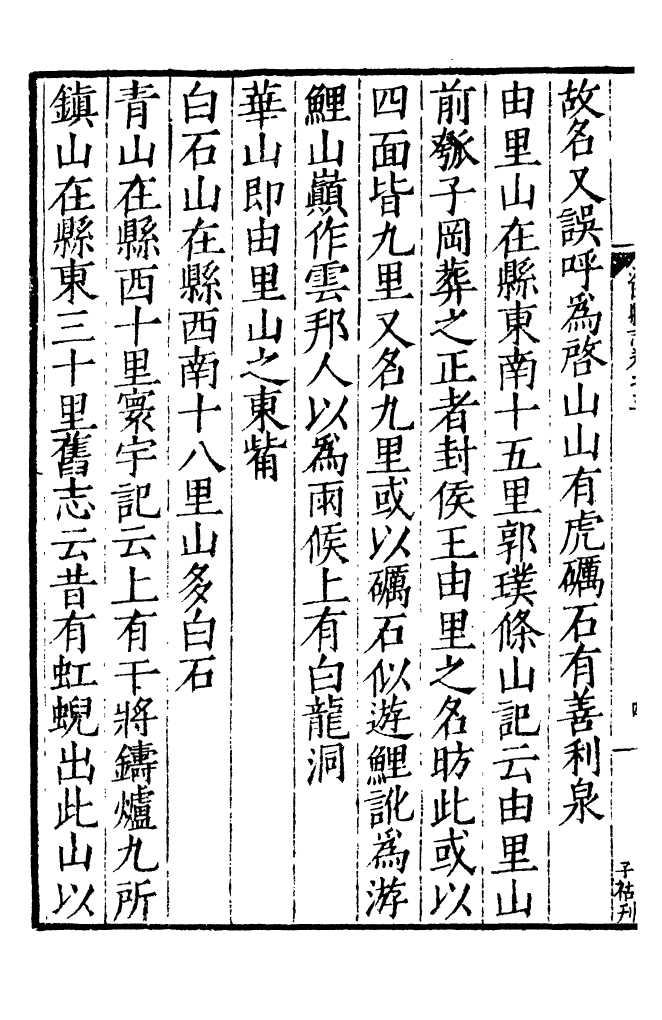 故名又誤呼為啓山山有虎礪石有善利泉
由里山在縣東南十五里郭璞條山記云由里山
前瓠子岡葬之正者封侯王由里之名昉此或以
四面皆九里又名九里或以礪石似遊鯉訛為游
鯉山巔作雲邦人以為雨候上有白龍洞
華山即由里山之東觜
白石山在縣西南十八里山多白石
青山在縣西十里寰宇記云上有干將鑄爐九所
鎮山在縣東三十里舊志云昔有虹蜺出此山以
子祜刋